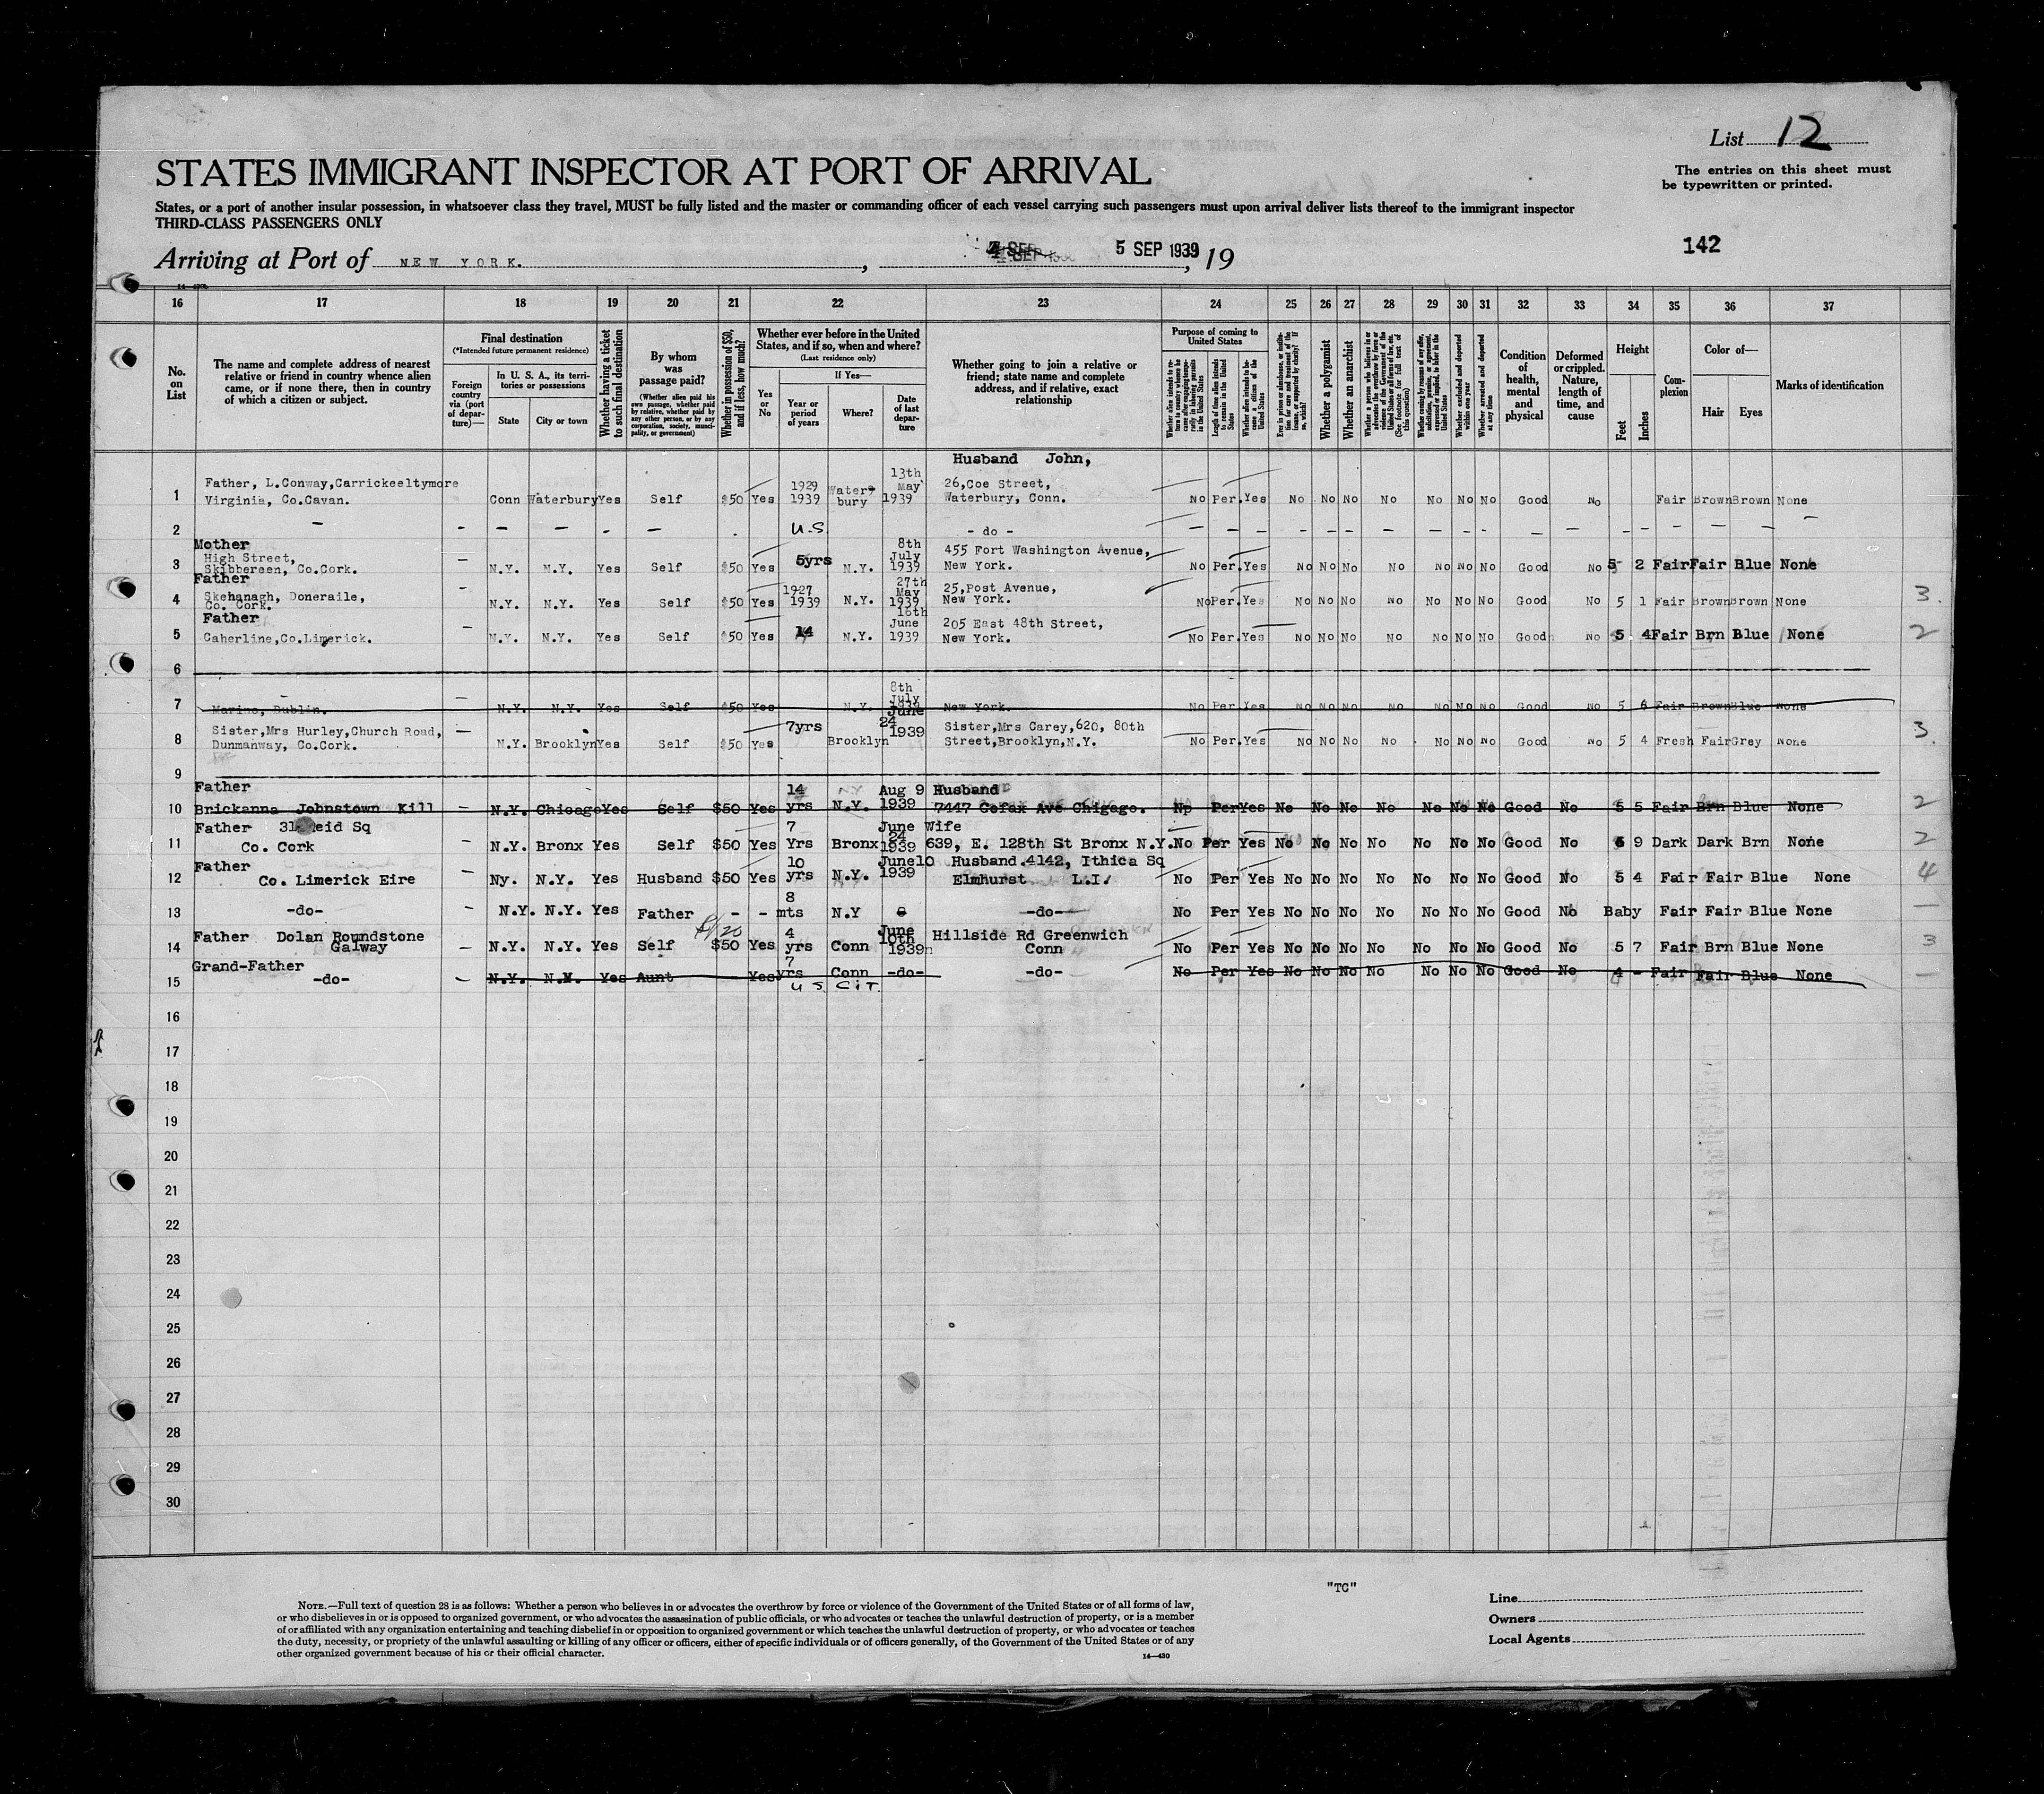 List 12
STATES IMMIGRANT INSPECTOR AT PORT OF ARRIVAL
The entries on this sheet must
be typewritten or printed.
States, or a port of another insular possession, in whatsoever class they travel, MUST be fully listed and the master or commanding officer of each vessel carrying such passengers must upon arrival deliver lists thereof to the immigrant inspector
THIRD-CLASS PASSENGERS ONLY
Arriving at Port of NEW YORK. , 4 SEP 5 SEP 1939, 19
142
16 17 18 19 20 21 22 23 24 25 26 27 28 29 30 31 32 33 34 35 36 37
No. on List
The name and complete address of nearest relative or friend in country whence alien came, or if none there, then in country of which a citizen or subject.
Final destination
(*Intended future permanent residence)
Foreign country via (port of departure)—
In U. S. A., its territories or possessions
State City or town
Whether having a ticket to such final destination
By whom was passage paid?
(Whether alien paid his own passage, whether paid by relative, whether paid by any other person, or by any corporation, society, municipality, or government)
Whether in possession of $50, and if less, how much?
Whether ever before in the United States, and if so, when and where?
(Last residence only)
Yes or No
If Yes—
Year or period of years Where? Date of last departure
Whether going to join a relative or friend; state name and complete address, and if relative, exact relationship
Purpose of coming to United States
Whether alien intends to return to country whence he came after engaging temporarily in laboring pursuits in the United States
Length of time alien intends to remain in the United States
Whether alien intends to become a citizen of the United States
Ever in prison or almshouse, or institution for care and treatment of the insane, or supported by charity? If so, which?
Whether a polygamist
Whether an anarchist
Whether a person who believes in or advocates the overthrow by force or violence of the Government of the United States or all forms of law, etc. (See footnote for full text of this question)
Whether coming by reason of any offer, solicitation, promise, or agreement, expressed or implied, to labor in the United States
Whether excluded and deported within one year
Whether arrested and deported at any time
Condition of health, mental and physical
Deformed or crippled. Nature, length of time, and cause
Height
Feet Inches
Complexion
Color of—
Hair Eyes
Marks of identification
Husband John,
1 Father, L.Conway,Carrickeeltymore Virginia, Co.Cavan. Conn Waterbury Yes Self $50 Yes 1929 1939 Waterbury 13th May 1939 26,Coe Street, Waterbury, Conn. No Per. Yes No No No No No No No Good No Fair Brown Brown None
2 — - - - - — . U.S. - do - — — — — — — — — — - — — - — — — — —
3 Mother High Street, Skibbereen, Co.Cork. — N.Y. N.Y. Yes Self $50 Yes 5yrs N.Y. 8th July 1939 455 Fort Washington Avenue, New York. No Per. Yes No No No No No No No Good No 5 2 Fair Fair Blue None
4 Father Skehanagh, Doneraile, Co. Cork. — N.Y. N.Y. Yes Self $50 Yes 1927 1939 N.Y. 27th May 1939 25,Post Avenue, New York. No Per. Yes No No No No No No No Good No 5 1 Fair Brown Brown None 3.
5 Father Caherline,Co.Limerick. — N.Y. N.Y. Yes Self $50 Yes 14 N.Y. 16th June 1939 205 East 48th Street, New York. No Per. Yes No No No No No No No Good No 5 4 Fair Brn Blue None 2
6
7 Marino, Dublin. — N.Y. N.Y. Yes Self $50 Yes N.Y. 8th July 1939 New York. No Per. Yes No No No No No No No Good No 5 6 Fair Brown Blue None
8 Sister,Mrs Hurley,Church Road, Dunmanway, Co.Cork. — N.Y. Brooklyn Yes Self $50 Yes 7yrs Brooklyn June 24 1939 Sister,Mrs Carey,620, 80th Street,Brooklyn,N.Y. No Per. Yes No No No No No No No Good No 5 4 Fresh Fair Grey None 3.
9
10 Father Brickanna Johnstown Kill — N.Y. Chicago Yes Self $50 Yes 14 yrs N.Y. Aug 9 1939 Husband 7447 Cofax Ave Chigago. No Per Yes No No No No No No No Good No 5 5 Fair Brn Blue None 2
11 Father Sq Co. Cork — N.Y. Bronx Yes Self $50 Yes 7 Yrs Bronx June 24 1939 Wife 639, E. 128th St Bronx N.Y. No Per Yes No No No No No No No Good No 6 9 Dark Dark Brn None 2
12 Father Co. Limerick Eire — Ny. N.Y. Yes Husband $50 Yes 10 yrs N.Y. June10 1939 Husband.4142, Ithica Sq Elmhurst L.I. No Per Yes No No No No No No No Good No 5 4 Fair Fair Blue None 4
13 -do- — N.Y. N.Y. Yes Father - - 8 mts N.Y -do- No Per Yes No No No No No No No Good No Baby Fair Fair Blue None —
14 Father Dolan Roundstone Galway — N.Y. N.Y. Yes Self $50 Yes 4 yrs Conn June 10th 1939 Hillside Rd Greenwich Conn No Per Yes No No No No No No No Good No 5 7 Fair Brn Blue None 3
15 Grand-Father -do- — N.Y. N.Y. Yes Aunt Yes 7 yrs Conn -do- -do- No Per Yes No No No No No No No Good No 4 - Fair Fair Blue None —
U S CIT.
16
17
18
19
20
21
22
23
24
25
26
27
28
29
30
"TC"
NOTE.—Full text of question 28 is as follows: Whether a person who believes in or advocates the overthrow by force or violence of the Government of the United States or of all forms of law,
or who disbelieves in or is opposed to organized government, or who advocates the assassination of public officials, or who advocates or teaches the unlawful destruction of property, or is a member
of or affiliated with any organization entertaining and teaching disbelief in or opposition to organized government or which teaches the unlawful destruction of property, or who advocates or teaches
the duty, necessity, or propriety of the unlawful assaulting or killing of any officer or officers, either of specific individuals or of officers generally, of the Government of the United States or of any
other organized government because of his or their official character.
14—430
Line
Owners
Local Agents